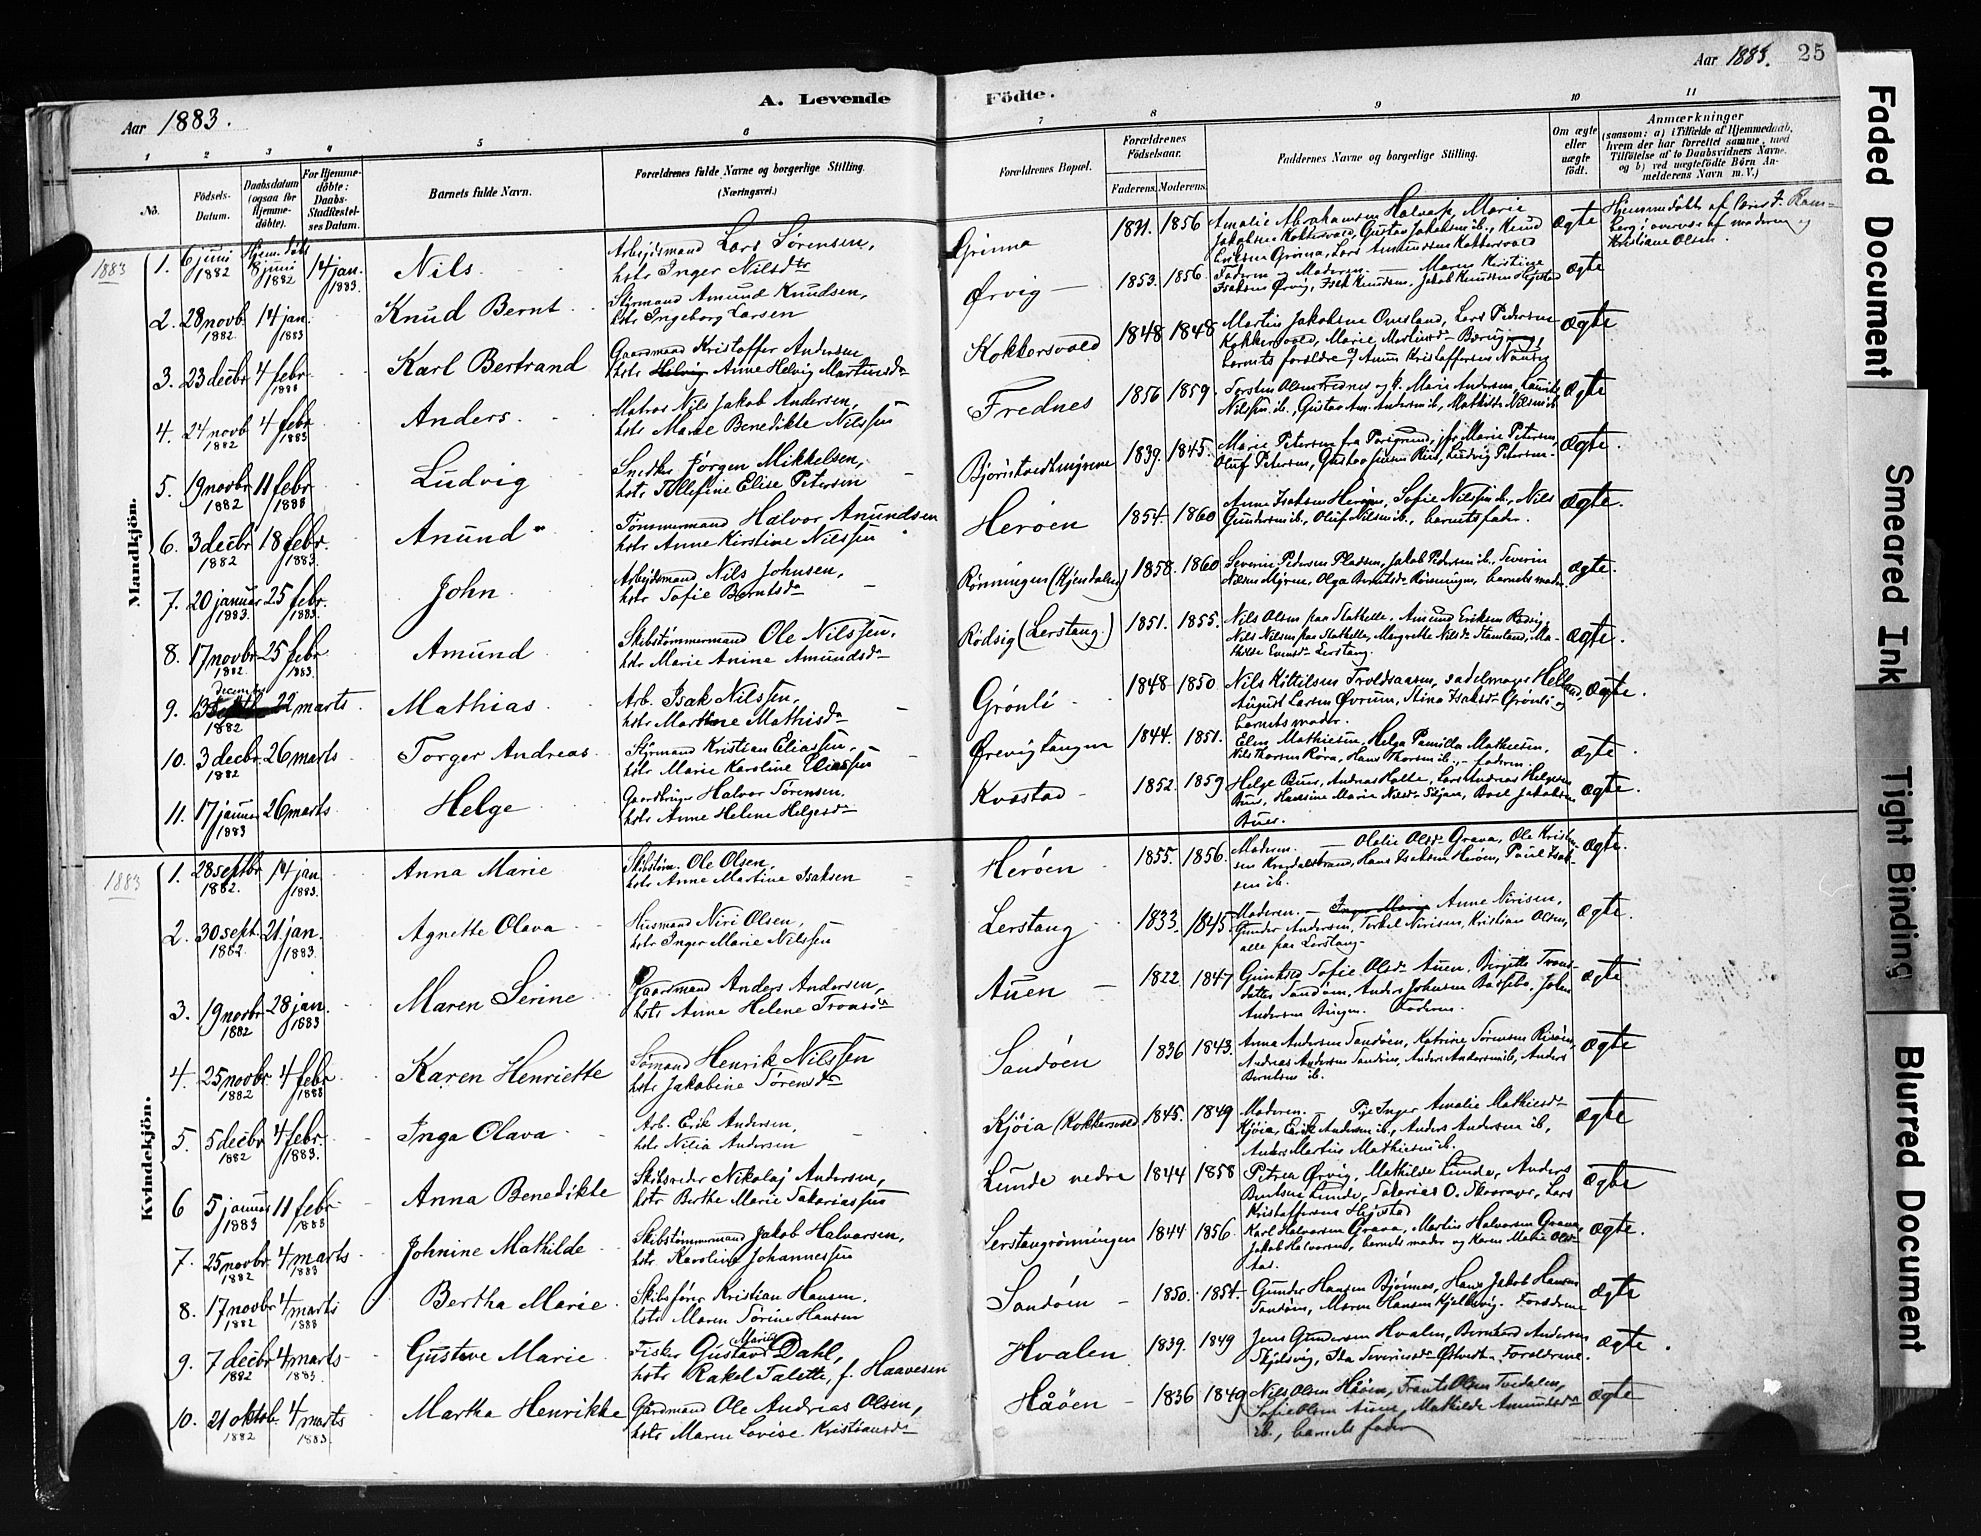 Aar 1883.
A. Levende
Födte.
Aar 1883. 25
1 2 3 4 5 6 7 8 9 10 11
No.
Födsels-
Datum.
Daabsdatum
(ogsaa for
Hjemme-
døbte).
For Hjemme-
døbte:
Daabs-
Stadfestel-
ses Datum.
Barnets fulde Navn.
Forældrenes fulde Navne og borgerlige Stilling.
(Næringsvei.)
Forældrenes Bopæl.
Forældrenes
Födselsaar.
Faderens. Moderens.
Faddernes Navne og borgerlige Stilling.
Om ægte
eller
uægte
født.
Anmærkninger
(saasom: a) i Tilfælde af Hjemmedaab,
hvem der har forrettet samme, med
Tilføielse af to Daabsvidners Navne,
og b) ved uægtefødte Børn An-
melderens Navn m. V.)
Mandkjön.
1883
1. 6 juni 1882 Hjem. døbt 8 juni 1882 14 jan. 1883. Nils
Arbejdsmand Lars Sørensen,
hstr Inger Nilsdtr
Grinna 1831. 1856
Amalie Abrahamsen Halvarp, Marie
Jakobsen Kokkersvold, Gustav Jakobsen ib., Knud
Eriksen Grinna, Lars Amundsen Kokkersvold
ægte
Hjemmedøbt af
overvær af moderen og
Kristiane Olsen.
2. 28 novb. 1882 14 jan. 1883 Knud Bernt
Styrmand Amund Knudsen,
hstr Ingeborg Larsen
Ørvig 1853. 1856
Faderen og Moderen. — Maren Kristine
Isaksen Ørvig, Isak Knudsen, Jakob Knudsen
ægte
3. 23 decbr 4 febr. 1883 Karl Bertrand
Gaardmand Kristoffer Andersen
hstr Anne Helvig Martinsdr
Kokkersvold 1848 1848
Martin Jakobsen Omsland, Lars Pedersen
Kokkersvold, Marie
barnets forældre og Anun Kristoffersen
ægte
4. 24 novb 1882 4 febr 1883 Anders
Matros Nils Jakob Andersen,
hstr Marie Benedikte Nilssen
Frednes 1856 1859
Torsten Olsen Frednes og h. Marie Andersen, Laurits
Nilssen ib., Gustav Am. Andersen ib, Mathilde Nilsen ib
ægte
5. 19 novbr 1882 11 febr 1883 Ludvig
Snedker Jörgen Mikkelsen,
hstr Tollefine Elise Petersen
Bjørntvedtmyrene 1839. 1845.
Marie Petersen fra Porsgrund, jfr Marie Petersen,
Oluf Petersen, Gustav Jensen Ris, Ludvig Petersen
ægte
6. 3 decbr 1882 18 febr. 1883. Anund
Tømmermand Halvor Anundsen
hstr Anne Kirstine Nilssen
Herøen 1854. 1860
Anne Isaksen Herøen, Sofie Nilssen ib., Nils
Gundersen ib., Oluf Nilsen ib., barnets fader.
ægte.
7. 20 januar 1883. 25 febr. 1883. John
Arbejdsmand Nils Johnsen,
hstr Sofie Berntsdr
Rønningen (Kjendalen) 1858. 1860
Severin Pedersen Pladsen, Jakob Pedersen ib., Severin
Nilsen Myren, Olga Berntsdr Rønningen, barnets moder
ægte.
8. 17 novbr 1882. 25 febr 1883. Amund
Skibstømmermand Ole Nilssen,
hstr Marie Anine Amundsdr
Rødsig (Lerstang.) 1851. 1855.
Nils Olsen fra Stathelle, Amund Eriksen Rødsig,
Nils Nilsen fra Stathelle, Margrethe Nilsdr Stamland, Ma-
thilde Evensdr Lerstang.
ægte.
9. 13 december 1882 22 marts Mathias
Arb. Isak Nilssen,
hstr Marthine Mathisdr
Grønli 1848 1850
Nils Kittilsen Troldsaasen, sadelmager Helland,
August Larsen Øvrum, Stina Isaksdr Grønli og
barnets moder.
ægte.
10. 3 decbr. 1882 26 marts Torger Andreas
Styrmand Kristian Eliassen,
hstr Marie Karoline Eliassen
Ørevigtangen 1844. 1851.
Elen Mathiesen, Helga Pamilla Mathiesen,
Nils Thorsen Røra, Hans Thorsen ib., faderen.
ægte
11. 17 januar 1883 26 marts Helge
Gaardbruger Halvor Sørensen,
hstr Anne Helene Helgesdr
Kvæstad 1852. 1859
Helge Buer, Andreas Holte, Lars Andreas Helgesen
Buer, Hansine Marie Nilsdr Stjan, Boel Jakobsen
Buer.
ægte.
Kvindekjön.
1883
1. 28 septbr 1882. 14 jan 1883. Anna Marie
Skibstøm. Ole Olsen,
hstr Anne Martine Isaksen
Herøen 1855. 1856.
Moderen. — Olalie Olsdr Grava, Ole Kristen-
sen Krogdalstrand, Hans Isaksen Herøen, Poul Isak-
sen ib.
ægte.
2. 30 sept. 1882. 21 jan. 1883. Agnette Olava
Husmand Niri Olsen,
hstr Inger Marie Nilssen
Lerstang 1833. 1845
Moderen. — Anne Nirisen,
Gunder Andersen, Torkel Nirisen, Kristian Olsen,
alle fra Lerstang.
ægte.
3. 19 novbr 1882 28 jan. 1883 Maren Serine
Gaardmand Anders Andersen,
hstr Anne Helene Tronsdr
Auen 1822. 1847
Gunhild Sofie Olsdr Auen, Birgitte Trons-
datter Sandøen, Anders Johnsen Bassebo, John
Andersen Bingen. Faderen.
ægte
4. 25 novbr 1882 4 febr 1883 Karen Henriette
Sømand Henrik Nilssen
hstr Jakobine Sørensdr
Sandøen 1836 1843.
Anna Andersen Sandøen, Katrine Sørensen Risøen,
Andreas Andersen Sandøen, Anders Andersen ib, Anders
Berntsen ib.
ægte
5. 5 decbr 1882 4 febr 1883. Inga Olava
Arb. Erik Andersen,
hstr Nilia Andersen
Kjøia (Kokkersvold 1845. 1849
Moderen. — Pige Inger Amalie Mathiesdr
Kjøia, Erik Andersen ib., Anders Andersen ib,
Anders Martin Mathiesen ib.
ægte
6 5 januar 1883 11 febr 1883 Anna Benedikte
Skibsreder Nikolaj Andersen,
hstr Berthe Marie Sakariassen
Lunde nedre 1844 1858
Petrea Ørvig, Mathilde Lunde, Anders
Berntsen Lunde, Sakarias O. Skavager, Lars
Kristoffersen
ægte
7. 25 novbr 1882 4 marts 1883 Johnine Mathilde
Skibstømmermand Jakob Halvorsen,
hstr Karoline Johannessen
Lerstangrønningen 1844 1856
Karl Halvorsen Grava, Martin Halvorsen Grava,
Jakob Halvorsen, barnets moder og Karen Marie Olsdr
Aas.
ægte.
8. 17 novbr 1882 4 marts 1883 Bertha Marie
Skibsfører Kristian Hansen,
hstr Maren Sørine Hansen
Sandøen 1850. 1854
Gunder Hansen Bjønnes, Hans Jakob Hansen
Sandøen, Maren Hansen Kjelsvig. Forældrene
ægte
9. 7 decbr 1882 4 marts 1883. Gustave Marie
Fisker Gustav Marius Dahl,
hstr Rakel Talette, f. Haavesen
Hvalen 1839. 1849
Jens Gundersen Hvalen, Bernhard Andersen
Skjelsvig, Ida Severinsdr Østvedt. Forældrene.
ægte.
10. 21 oktob. 1882 4 marts 1883. Martha Henrikke
Gårdmand Ole Andreas Olsen,
hstr Maren Lovise Kristiansdr
Håøen 1836 1849
Nils Olsen Håøen, Frants Olsen Tvedalen,
Sofie Olsen Auen, Mathilde Amundsdr
ib., barnets fader
ægte
Faded Document
Smeared Ink
Tight Binding
Blurred Document